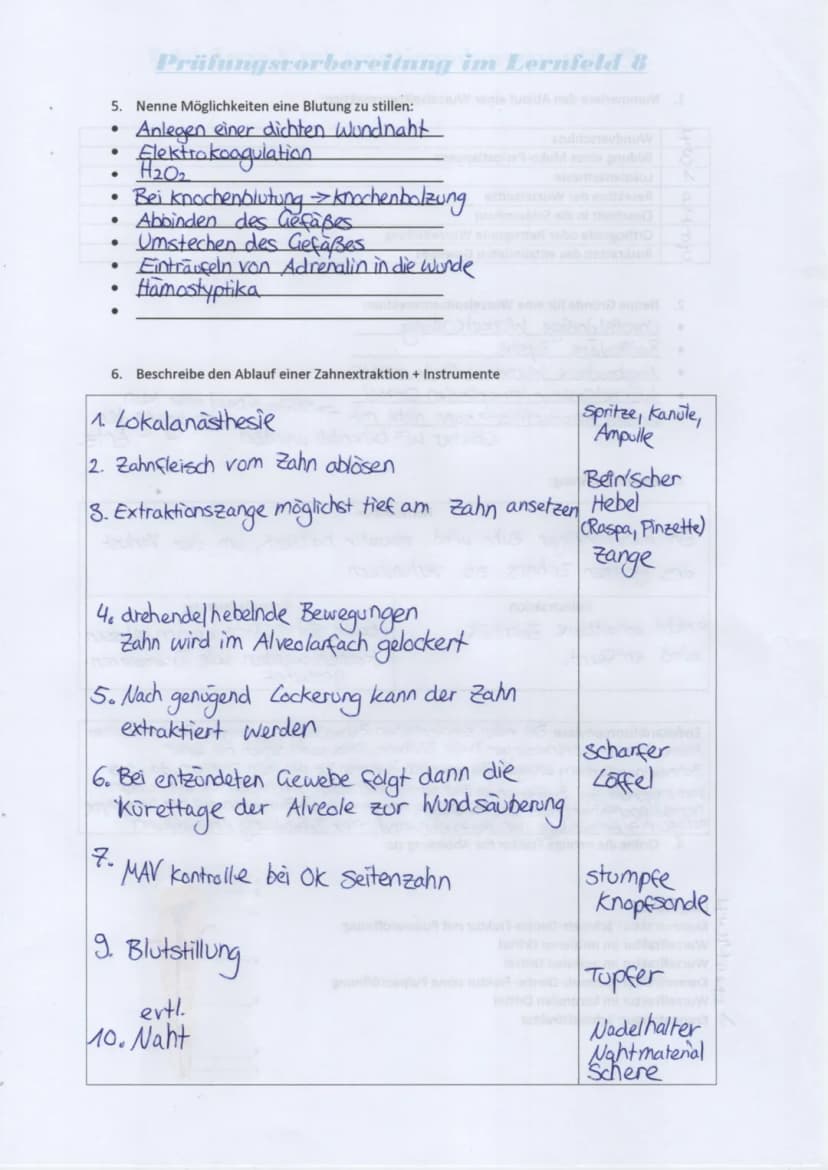 Prüfungsvorbereitung im Lernfeld 8
5. Nenne Möglichkeiten eine Blutung zu stillen:
• Anlegen einer dichten Wundnaht
• Elektrokoagulation
• H2O2
• Bei Knochenblutung → Knochenbolzung
• Abbinden des Gefäßes
• Umstechen des Gefäßes
• Einträufeln von Adrenalin in die Wunde
• Hämostyptika
•
6. Beschreibe den Ablauf einer Zahnextraktion + Instrumente
1. Lokalanästhesie
Spritze, Kanüle,
Ampulle
2. Zahnfleisch vom Zahn ablösen
Bein'scher
3. Extraktionszange möglichst tief am Zahn ansetzen
Hebel
(Raspa, Pinzette)
Zange
4. drehende/hebelnde Bewegungen
Zahn wird im Alveolarfach gelockert
5. Nach genügend Lockerung kann der Zahn
extraktiert werden
scharfer
6. Bei entzündeten Gewebe folgt dann die
Löffel
Kürettage der Alveole zur Wundsäuberung
7.
MAV Kontrolle bei OK Seitenzahn
stumpfe
Knopfsonde
9. Blutstillung
Tupfer
evtl.
10. Naht
Nadelhalter
Nahtmaterial
Schere